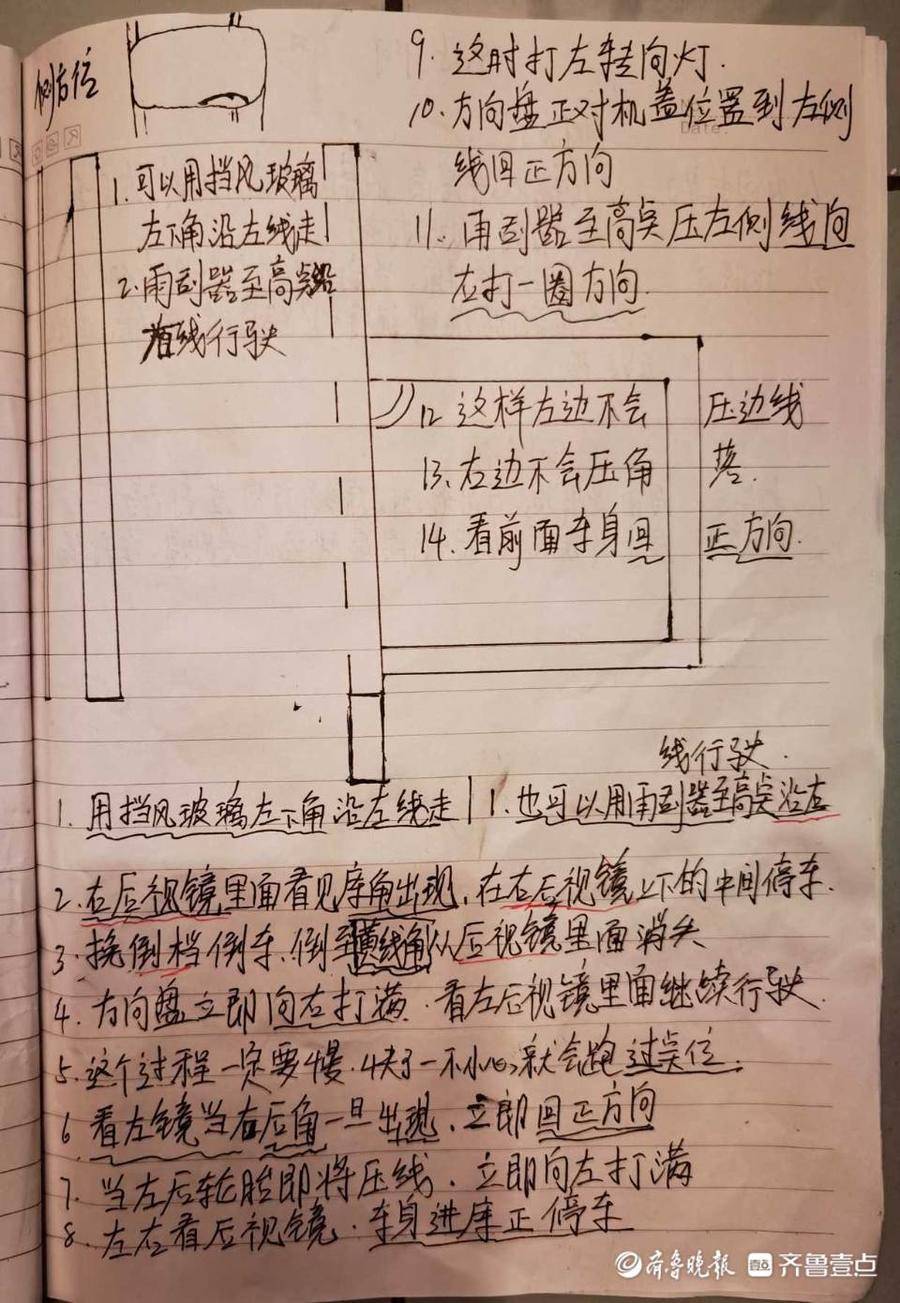 侧方位
9. 这时打左转向灯.
10. 方向盘正对机盖位置到左侧
线回正方向
11. 雨刮器至高点压左侧线向
右打一圈方向.
1. 可以用挡风玻璃
左下角沿左线走
2. 雨刮器至高点沿
着线行驶
12 这样左边不会 压边线
13. 右边不会压角 落.
14. 看前面车身回 正方向.
线行驶.
1. 用挡风玻璃左下角沿左线走 | 1. 也可以用雨刮器至高点沿左
2. 右后视镜里面看见库角出现, 在右后视镜上下的中间停车.
3. 挽倒档倒车. 倒至横线角从后视镜里面消失
4. 方向盘立即向右打满. 看左后视镜里面继续行驶.
5. 这个过程一定要慢. 快了一不小心就会跑过点位.
6 看左镜当右后角一旦出现. 立即回正方向
7. 当左后轮胎即将压线. 立即向左打满
8. 左右看后视镜. 车身进库正停车
齐鲁晚报 齐鲁壹点